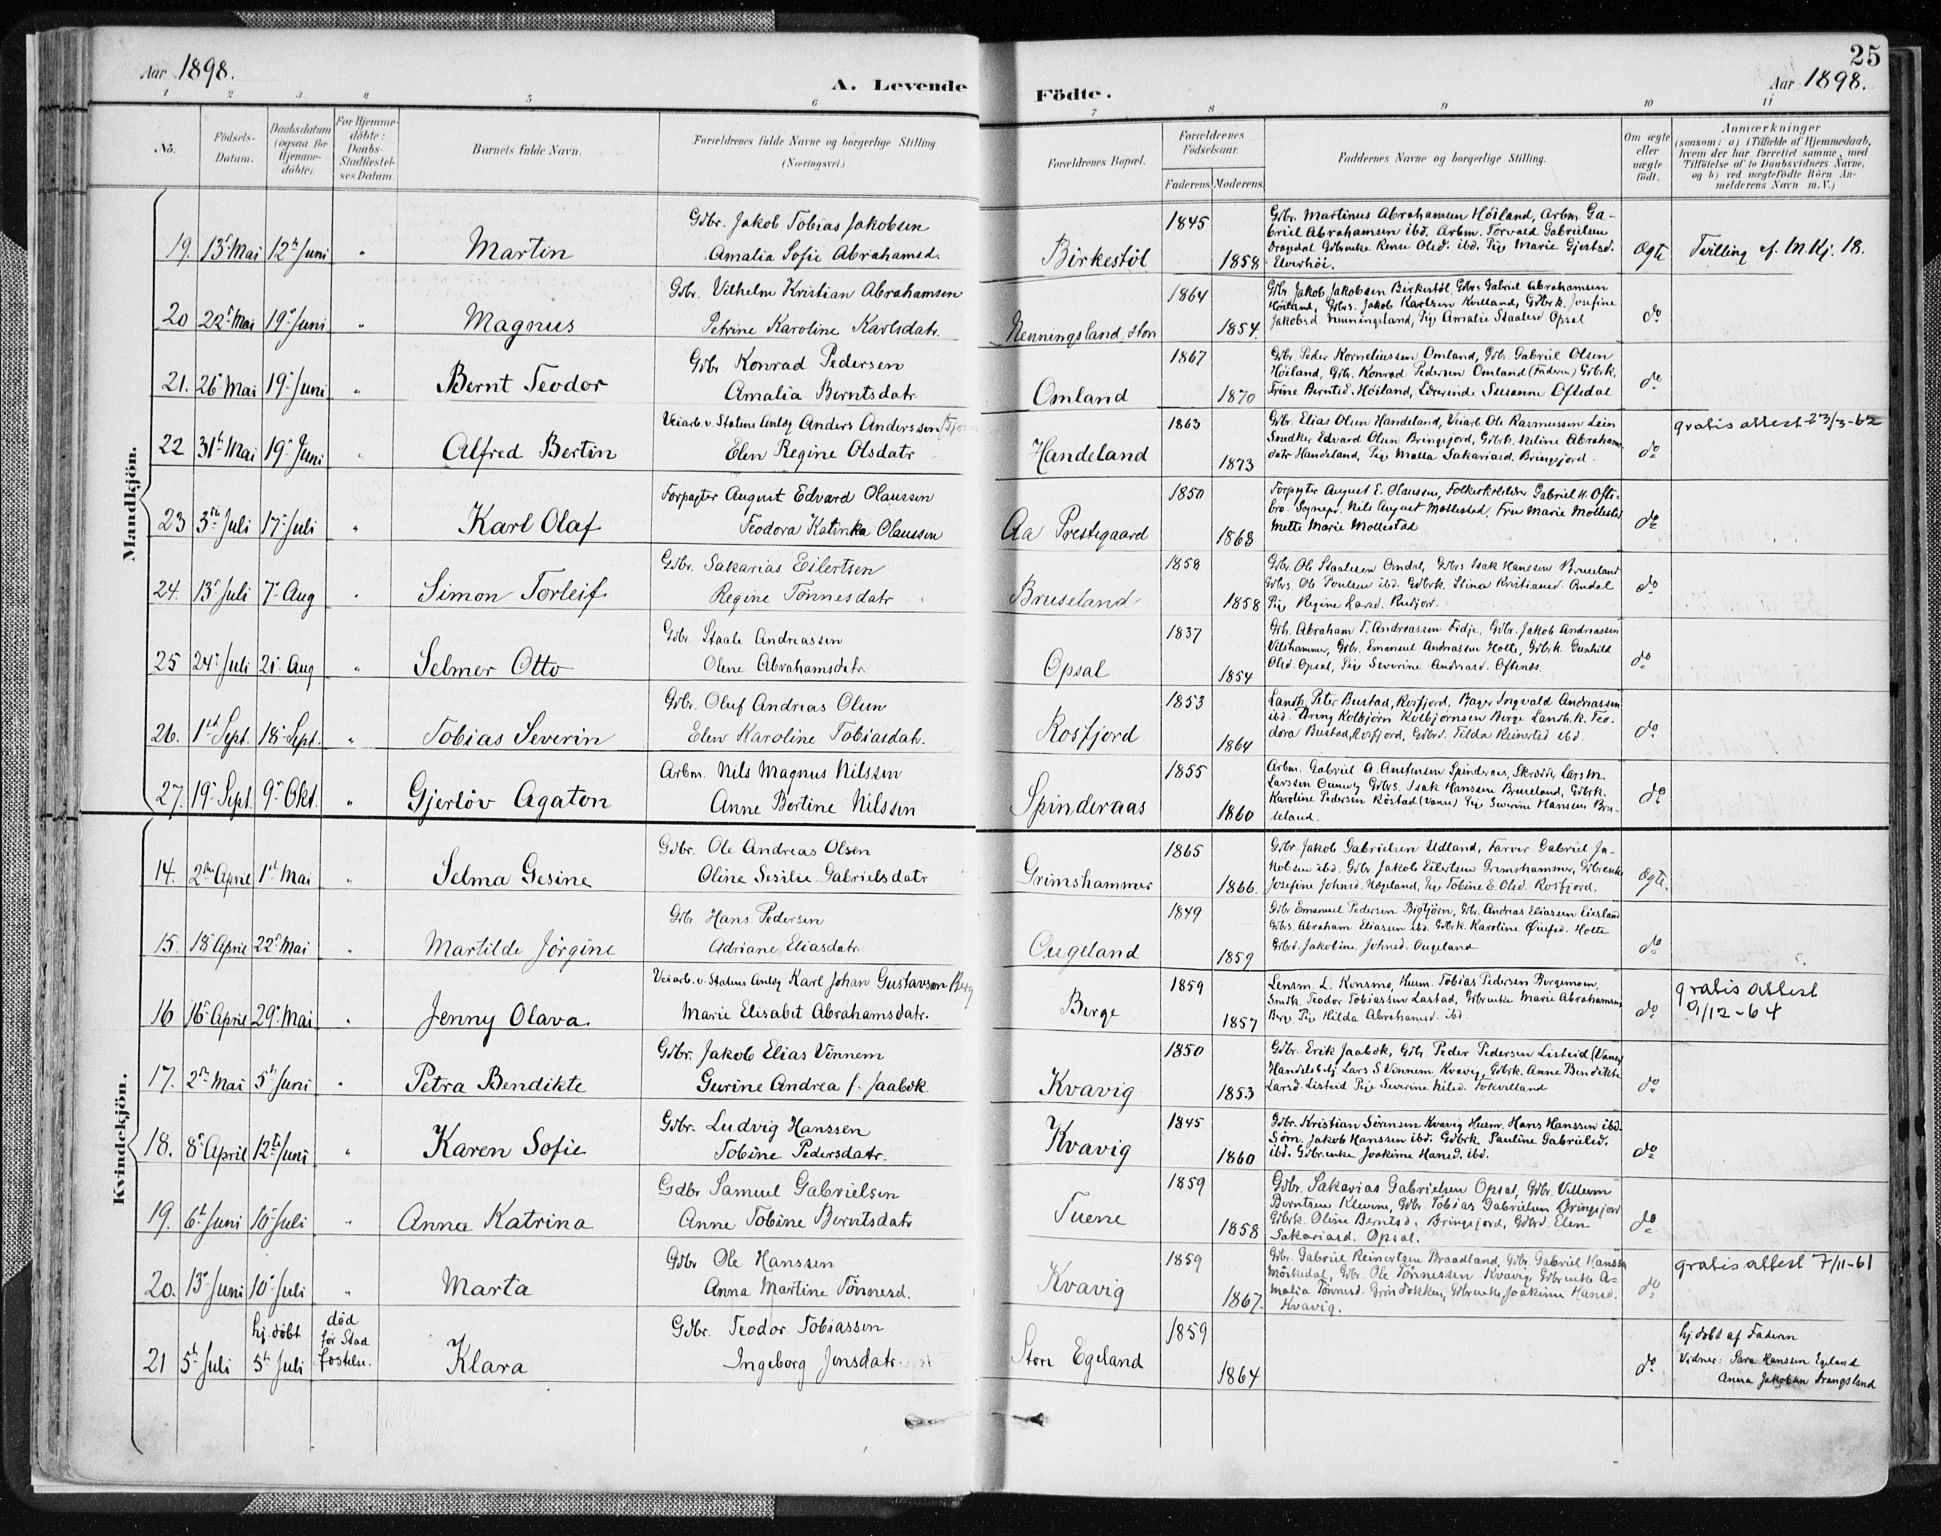 25
Aar 1898.
A. Levende Födte.
Aar 1898.
1 2 3 4 5 6 7 8 9 10 11
No.
Födsels-Datum.
Daabsdatum (ogsaa för Hjemme-döbte).
For Hjemme-döbte: Daabs-Stadfæstel-ses Datum.
Barnets fulde Navn.
Forældrenes fulde Navne og borgerlige Stilling (Næringsvei.)
Forældrenes Bopæl.
Forældrenes Födselsaar.
Faderens. Moderens.
Faddernes Navne og borgerlige Stilling.
Om ægte eller uægte födt.
Anmærkninger
(saasom: a) i Tilfælde af Hjemmedaab,
hvem der har forrettet samme, med
Tilföielse af to Daabsvidners Navne,
og b) ved uægtefödte Börn An-
melderens Navn m. V.)
Mandkjön.
19. 13de Mai 12te Juni " Martin
Gdbr. Jakob Tobias Jakobsen
Amalia Sofie Abrahamsd.
Birkestöl 1845 1858
Gdbr. Martinus Abrahamsen Höiland, Arbm. Ga-
briel Abrahamsen ibd. Arbm. Torvald Gabrielsen
Gdbrenke Olsd. ibd. Pige Marie Gjertsd.
Elverhöi.
Ægte Tvilling cf. M.Kj. 18.
20 22de Mai 19de Juni " Magnus
Gdbr. Vilhelm Kristian Abrahamsen
Petrine Karoline Karlsdatr.
Nenningsland 1864 1854.
Gdbr. Jakob Jakobsen Birkestöl, Gdbrs. Gabriel Abrahamsen
Höiland, Gdbrs. Jakob Karlsen Kvilland, Gdbrk. Josefine
Jakobsd Nenningsland, Pige Amalie Staalesd Opsal
do
21. 26de Mai 19de Juni " Bernt Teodor
Gdbr. Konrad Pedersen
Amalia Berntsdatr
Omland 1867 1870
Gdbr. Peder Korneliussen Omland, Gdbr. Gabriel Olsen
Höiland, Gdbr. Konrad Pedersen Omland (Faderen) Gdbrk.
Trine Berntsd. Höiland, Lærerinde Susanne Oftedal
do
22 31te Mai 19de Juni " Alfred Bertin
Veiarb. v. Statens Anlæg Anders Anderssen
Elen Regine Olsdatr
Handeland 1863 1873
Gdbr. Elias Olsen Handeland, Veiarb. Ole Rasmussen Lein
Smedker Edvard Olsen Bringsjord, Gdbrk. Abrahams-
datr Handeland, Pige Malla Sakariasd. Bringsjord
do gratis attest 23/3-62
23 3die Juli 17de Juli " Karl Olaf
Forpagter August Edvard Olaussen
Teodora Katinka Olaussen
Aa Prestegaard 1850 1868
Forpagter August E. Olaussen, Gabriel H. Ofte-
bro. Sognepr. Nils August Mollestad, Fru Marie Mollestad
Mette Marie Mollestad
do
24. 13de Juli 7de Aug " Simon Torleif
Gdbr. Sakarias Eilertsen
Regine Tönnesdatr
Bruseland 1858 1858
Gdbr. Ole Staalesen Omdal, Gdbrs. Isak Hanssen Bruseland
Gdbrs. Ole Poulsen ibd. Gdbrk. Stina Kristiansd. Omdal
Pige Regine Larsd.
do
25 24de Juli 21de Aug " Selmer Otto
Gdbr. Staale Andreassen
Olene Abrahamsdatr.
Opsal 1837 1854
Gdbr. Abraham T. Andreassen Fidje, Gdbr. Jakob Andreassen
Vilshammer, Gdbr. Emanuel Andreassen Holte, Gdbrk. Gunhild
Olsd. Opsal, Pige Severine Andreasd. Oftenes.
do
26. 1ste Sept. 18de Sept. " Tobias Severin
Gdbr. Oluf Andreas Olsen
Elen Karoline Tobiasdatr.
Rosfjord 1853 1864
Landh. Peter Bustad, Rosfjord, Bager Ingvald Andreassen
ibd. Dreng Kolbjörn Kolbjörnsen Berge Landh.k. Teo-
dora Bustad, Rosfjord, Gdbrd. Tilda Reinertsd ibd.
do
27. 19de Sept. 9de Okt. " Gjerlöv Agaton
Arbm. Nils Magnus Nilssen
Anne Bertine Nilssen
Spinderaas 1855 1860
Arbm. Gabriel A. Austensen Spinderaas, Skræd. Lars M.
Larssen Gdbrs. Isak Hanssen Bruseland, Gdbrk.
Karoline Pedersen Röstad (Vanse) Pige Severine Hanssen Bru-
seland.
do
Kvindekjön.
14. 2den April 1ste Mai " Selma Gesine
Gdbr. Ole Andreas Olsen
Oline Sesilie Gabrielsdatr
Grimshammer 1865 1866.
Gdbr. Jakob Gabrielsen Udland, Farver Gabriel Ja-
kobsen ibd. Gdbr. Jakob Eilertsen Grimshammer, Gdbrenke
Josefine Johnsd. Hægeland, Pige Tobine E. Olsd. Rosfjord.
Ægte.
15. 18de April 22de Mai " Martilde Jörgine
Gdbr. Hans Pedersen
Adriane Eliasdatr
Augeland 1849 1859
Gdbr. Emanuel Pedersen Bigtjörn, Gdbr. Andreas Eliassen
Gdbrs. Abraham Eliassen ibd. Gdbrk. Karoline Holte
Gdbrd. Jakobine Johnsd. Augeland
do
16 16de April 29de Mai " Jenny Olava.
Veiarb. v. Statens Anlæg Karl Johan Gustavson Berg
Marie Elisabet Abrahamsdatr.
Berge 1859 1857
Lensm. L. Konsmo, Husm. Tobias Pedersen Bergemoen,
Smedk. Teodor Tobiassen Lastad, Gdbrenke Marie Abrahamsen
Berge Pige Hilda Abrahamsd. ibd.
do gratis attest
9/12-64
17. 2den Mai 5te Juni " Petra Bendikte
Gdbr. Jakob Elias Vennem
Gurine Andrea f. Jaabek.
Kvavig 1850 1853
Gdbr. Erik Jaabek, Gdbr. Peder Pedersen Listeid (Vanse)
Handelsbetj. Lars S. Vennem Kvavig, Gdbrk. Anne Bendikte
Larsd. Listeid Pige Severine Nilsd.
do
18. 8de April 12te Juni " Karen Sofie
Gdbr. Ludvig Hanssen
Tobine Pedersdatr.
Kvavig 1845 1860
Gdbr. Kristian Sörensen Kvavig Husm. Hans Hanssen ibd.
Sjöm. Jakob Hanssen ibd. Gdbrk. Pauline Gabrielsd.
ibd. Gdbrenke Joakime Hansd. ibd.
do
19. 6te Juni 10de Juli " Anna Katrina
Gdbr Samuel Gabrielsen
Anne Tobine Berntsdatr
Tuene 1859 1858
Gdbr. Sakarias Gabrielsen Opsal, Gdbr. Villum
Berntsen Kleven, Gdbr. Tobias Gabrielsen Bringsjord
Gdbrk. Oline Berntsd. Bringsjord, Gdbrd. Elen
Sakariasd. Opsal.
do
20. 13de Juni 10de Juli " Marta
Gdbr. Ole Hanssen
Anna Martine Tönnesd.
Kvavig 1859 1867.
Gdbr. Gabriel Reinertsen Braadland, Gdbr. Gabriel Hanssen
Mörkedal, Gdbr. Ole Tönnessen Kvavig, Gdbrenke A-
malia Tönnesd. Gröndokken, Gdbrenke Joakime Hansd.
Kvavig.
do gratis attest 7/11-61
21 5te Juli hj. döbt 5te Juli död för Stadfæstelse. Klara
Gdbr. Teodor Tobiassen
Ingeborg Jensdatr.
Store Egeland 1859 1864
do hj. döbt af Faderen
Vidner: Sara Hanssen Egeland
Anna Jakobsen Drangsland